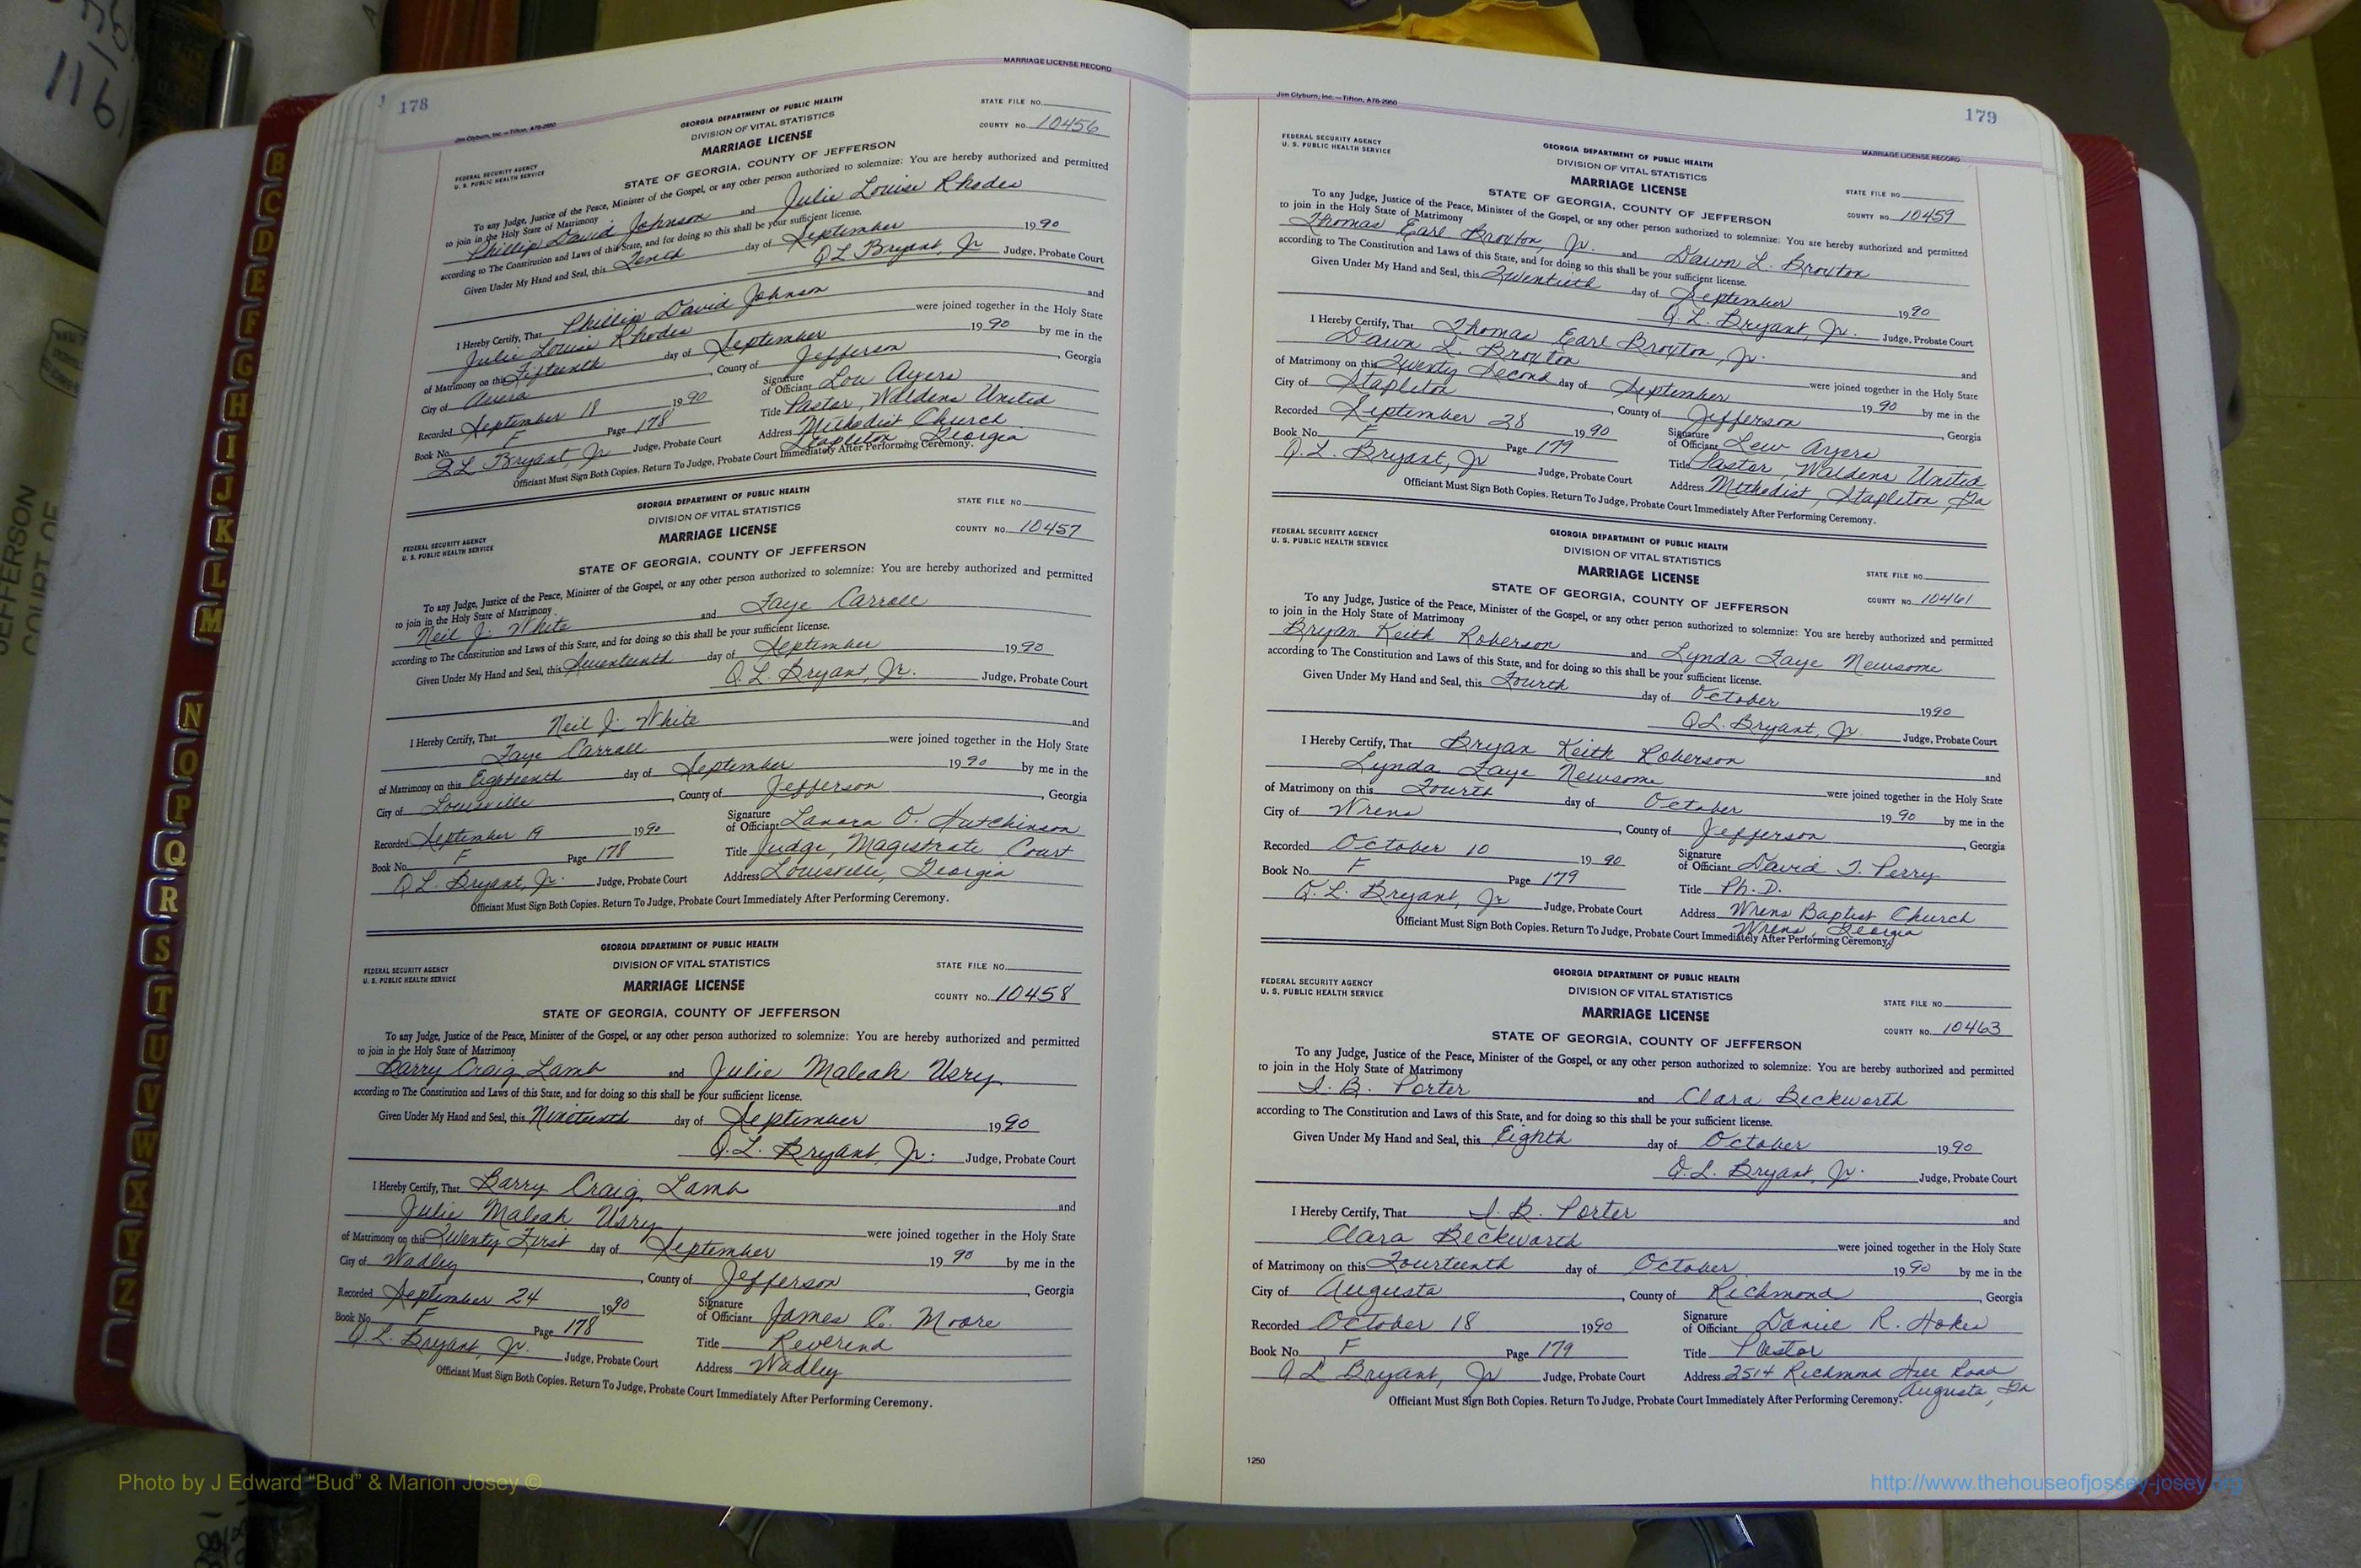 178
MARRIAGE LICENSE RECORD
Jim Clyburn, Inc.—Tifton, A78-2950
GEORGIA DEPARTMENT OF PUBLIC HEALTH
DIVISION OF VITAL STATISTICS
MARRIAGE LICENSE
STATE OF GEORGIA, COUNTY OF JEFFERSON
FEDERAL SECURITY AGENCY
U. S. PUBLIC HEALTH SERVICE
STATE FILE NO.
COUNTY NO. 10456
To any Judge, Justice of the Peace, Minister of the Gospel, or any other person authorized to solemnize: You are hereby authorized and permitted
to join in the Holy State of Matrimony
Phillip David Johnson and Julie Louise Rhodes
according to The Constitution and Laws of this State, and for doing so this shall be your sufficient license.
Given Under My Hand and Seal, this Tenth day of September 1990
Q L Bryant, Jr Judge, Probate Court
I Hereby Certify, That Phillip David Johnson and
Julie Louise Rhodes were joined together in the Holy State
of Matrimony on this Fifteenth day of September 1990 by me in the
City of Avera, County of Jefferson, Georgia
Recorded September 18 1990 Signature of Officiant Lou Ayers
Book No. F Page 178 Title Pastor, Waldens United
Q L Bryant, Jr Judge, Probate Court Address Methodist Church
Stapleton Georgia
Officiant Must Sign Both Copies. Return To Judge, Probate Court Immediately After Performing Ceremony.
GEORGIA DEPARTMENT OF PUBLIC HEALTH
DIVISION OF VITAL STATISTICS
MARRIAGE LICENSE
STATE OF GEORGIA, COUNTY OF JEFFERSON
FEDERAL SECURITY AGENCY
U. S. PUBLIC HEALTH SERVICE
STATE FILE NO.
COUNTY NO. 10457
To any Judge, Justice of the Peace, Minister of the Gospel, or any other person authorized to solemnize: You are hereby authorized and permitted
to join in the Holy State of Matrimony
Neil J. White and Faye Carroll
according to The Constitution and Laws of this State, and for doing so this shall be your sufficient license.
Given Under My Hand and Seal, this Seventeenth day of September 1990
Q. L. Bryant, Jr. Judge, Probate Court
I Hereby Certify, That Neil J. White and
Faye Carroll were joined together in the Holy State
of Matrimony on this Eighteenth day of September 1990 by me in the
City of Louisville, County of Jefferson, Georgia
Recorded September 19 1990 Signature of Officiant O. Hutchinson
Book No. F Page 178 Title Judge, Magistrate Court
Q. L. Bryant, Jr. Judge, Probate Court Address Louisville, Georgia
Officiant Must Sign Both Copies. Return To Judge, Probate Court Immediately After Performing Ceremony.
GEORGIA DEPARTMENT OF PUBLIC HEALTH
DIVISION OF VITAL STATISTICS
MARRIAGE LICENSE
STATE OF GEORGIA, COUNTY OF JEFFERSON
FEDERAL SECURITY AGENCY
U. S. PUBLIC HEALTH SERVICE
STATE FILE NO.
COUNTY NO. 10458
To any Judge, Justice of the Peace, Minister of the Gospel, or any other person authorized to solemnize: You are hereby authorized and permitted
to join in the Holy State of Matrimony
Barry Craig Lamb and Julie Maleah Usry
according to The Constitution and Laws of this State, and for doing so this shall be your sufficient license.
Given Under My Hand and Seal, this Nineteenth day of September 1990
Q. L. Bryant, Jr. Judge, Probate Court
I Hereby Certify, That Barry Craig Lamb and
Julie Maleah Usry were joined together in the Holy State
of Matrimony on this Twenty First day of September 1990 by me in the
City of Wadley, County of Jefferson, Georgia
Recorded September 24 1990 Signature of Officiant James C. Moore
Book No. F Page 178 Title Reverend
Q. L. Bryant, Jr. Judge, Probate Court Address Wadley
Officiant Must Sign Both Copies. Return To Judge, Probate Court Immediately After Performing Ceremony.
Jim Clyburn, Inc.—Tifton, A78-2950
179
MARRIAGE LICENSE RECORD
FEDERAL SECURITY AGENCY
U. S. PUBLIC HEALTH SERVICE
GEORGIA DEPARTMENT OF PUBLIC HEALTH
DIVISION OF VITAL STATISTICS
MARRIAGE LICENSE
STATE OF GEORGIA, COUNTY OF JEFFERSON
STATE FILE NO.
COUNTY NO. 10459
To any Judge, Justice of the Peace, Minister of the Gospel, or any other person authorized to solemnize: You are hereby authorized and permitted
to join in the Holy State of Matrimony
Thomas Earl Broxton, Jr. and Dawn L. Broxton
according to The Constitution and Laws of this State, and for doing so this shall be your sufficient license.
Given Under My Hand and Seal, this Twentieth day of September 1990
Q. L. Bryant, Jr. Judge, Probate Court
I Hereby Certify, That Thomas Earl Broxton, Jr. and
Dawn L. Broxton were joined together in the Holy State
of Matrimony on this Twenty Second day of September 1990 by me in the
City of Stapleton, County of Jefferson, Georgia
Recorded September 28 1990 Signature of Officiant Lew Ayers
Book No. F Page 179 Title Pastor, Waldens United
Q. L. Bryant, Jr Judge, Probate Court Address Methodist, Stapleton, Ga
Officiant Must Sign Both Copies. Return To Judge, Probate Court Immediately After Performing Ceremony.
FEDERAL SECURITY AGENCY
U. S. PUBLIC HEALTH SERVICE
GEORGIA DEPARTMENT OF PUBLIC HEALTH
DIVISION OF VITAL STATISTICS
MARRIAGE LICENSE
STATE OF GEORGIA, COUNTY OF JEFFERSON
STATE FILE NO.
COUNTY NO. 10461
To any Judge, Justice of the Peace, Minister of the Gospel, or any other person authorized to solemnize: You are hereby authorized and permitted
to join in the Holy State of Matrimony
Bryan Keith Roberson and Lynda Faye Newsome
according to The Constitution and Laws of this State, and for doing so this shall be your sufficient license.
Given Under My Hand and Seal, this Fourth day of October 1990
Q.L. Bryant, Jr. Judge, Probate Court
I Hereby Certify, That Bryan Keith Roberson and
Lynda Faye Newsome were joined together in the Holy State
of Matrimony on this Fourth day of October 1990 by me in the
City of Wrens, County of Jefferson, Georgia
Recorded October 10 1990 Signature of Officiant David T. Perry
Book No. F Page 179 Title Ph. D.
Q. L. Bryant, Jr Judge, Probate Court Address Wrens Baptist Church
Wrens, Georgia
Officiant Must Sign Both Copies. Return To Judge, Probate Court Immediately After Performing Ceremony.
FEDERAL SECURITY AGENCY
U. S. PUBLIC HEALTH SERVICE
GEORGIA DEPARTMENT OF PUBLIC HEALTH
DIVISION OF VITAL STATISTICS
MARRIAGE LICENSE
STATE OF GEORGIA, COUNTY OF JEFFERSON
STATE FILE NO.
COUNTY NO. 10463
To any Judge, Justice of the Peace, Minister of the Gospel, or any other person authorized to solemnize: You are hereby authorized and permitted
to join in the Holy State of Matrimony
I. B. Porter and Clara Beckworth
according to The Constitution and Laws of this State, and for doing so this shall be your sufficient license.
Given Under My Hand and Seal, this Eighth day of October 1990
Q. L. Bryant, Jr. Judge, Probate Court
I Hereby Certify, That I. B. Porter and
Clara Beckworth were joined together in the Holy State
of Matrimony on this Fourteenth day of October 1990 by me in the
City of Augusta, County of Richmond, Georgia
Recorded October 18 1990 Signature of Officiant R. Hokes
Book No. F Page 179 Title Pastor
Q L Bryant, Jr Judge, Probate Court Address 2514 Richmond Hill Road
Augusta, Ga
Officiant Must Sign Both Copies. Return To Judge, Probate Court Immediately After Performing Ceremony.
1250
B
C
D
E
F
G
H
I
J
K
L
M
N
O
P
Q
R
S
T
U
V
W
X
Y
Z
JEFFERSON
COURT OF
Photo by J Edward “Bud” & Marion Josey ©
http://www.thehouseofjossey-josey.org